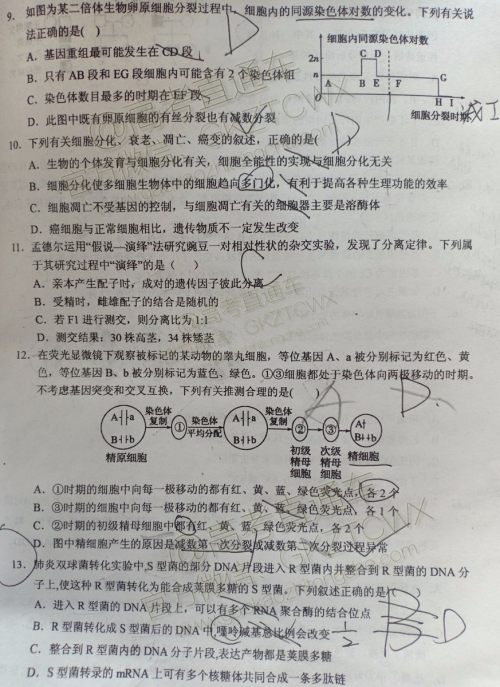 9. 如图为某二倍体生物卵原细胞分裂过程中，细胞内的同源染色体对数的变化。下列有关说
法正确的是( )
细胞内同源染色体对数
A．基因重组最可能发生在CD段
B．只有AB段和EG段细胞内可能含有2个染色体组
C．染色体数目最多的时期在EF段
D．此图中既有卵原细胞的有丝分裂也有减数分裂
2n
n
0
C D
A B E F G
H I
细胞分裂时期
减I
D
10. 下列有关细胞分化、衰老、凋亡、癌变的叙述，正确的是(
D
A．生物的个体发育与细胞分化有关，细胞全能性的实现与细胞分化无关
B．细胞分化使多细胞生物体中的细胞趋向多门化，有利于提高各种生理功能的效率
C．细胞凋亡不受基因的控制，与细胞凋亡有关的细胞器主要是溶酶体
D．癌细胞与正常细胞相比，遗传物质不一定发生改变
11. 孟德尔运用“假说—演绎”法研究豌豆一对相对性状的杂交实验，发现了分离定律。下列属
于其研究过程中“演绎”的是( )
C
A．亲本产生配子时，成对的遗传因子彼此分离
B．受精时，雌雄配子的结合是随机的
C．若F1进行测交，则分离比为1:1
D．测交结果：30株高茎，34株矮茎
12. 在荧光显微镜下观察被标记的某动物的睾丸细胞，等位基因A、a被分别标记为红色、黄
色，等位基因B、b被分别标记为蓝色、绿色。①③细胞都处于染色体向两极移动的时期。
不考虑基因突变和交叉互换，下列有关推测合理的是( )
D.
A a
B b
精原细胞
染色体
复制
①
染色体
平均分配
A a
B b
染色体
复制
②
初级
精母
细胞
③
次级
精母
细胞
A
B b
精细胞
A．①时期的细胞中向每一极移动的都有红、黄、蓝、绿色荧光点，各2个
B．③时期的细胞中向每一极移动的都有红、黄、蓝、绿色荧光点，各1个
C．②时期的初级精母细胞中都有红、黄、蓝、绿色荧光点，各2个
D．图中精细胞产生的原因是减数第一次分裂或减数第二次分裂过程异常
13. 肺炎双球菌转化实验中,S型菌的部分DNA片段进入R型菌内并整合到R型菌的DNA分
子上,使这种R型菌转化为能合成荚膜多糖的S型菌。下列叙述正确的是(
A．进入R型菌的DNA片段上，可以有多个RNA聚合酶的结合位点
B．R型菌转化成S型菌后的DNA中,嘌呤碱基总比例会改变
1/2
D
C．整合到R型菌内的DNA分子片段,表达产物都是荚膜多糖
D．S型菌转录的mRNA上可有多个核糖体共同合成一条多肽链